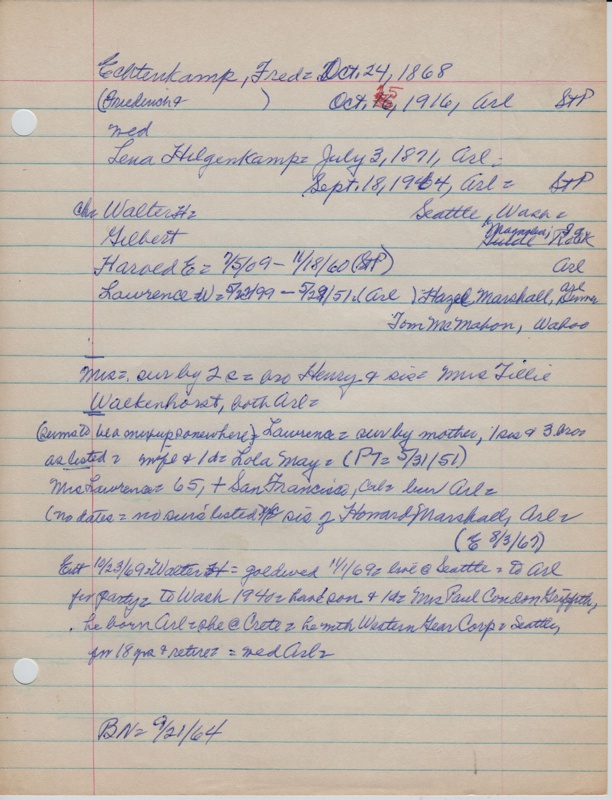 Echtenkamp, Fred = Oct. 24, 1868
(Friedrich ) Oct. 15, 1916, Arl StP
wed
Lena Hilgenkamp = July 3, 1871, Arl =
Sept. 18, 1964, Arl = StP
chr Walter H = Seattle, Wash =
Gilbert Magnolia,
Harold E = 7/5/69 - 11/18/60 (StP) Arl
Lawrence W = 5/23/99 - 5/29/51 (Arl) Hazel Marshall, Arl
Tom McMahon, Wahoo
Mrs = sur by 2 s = bro Henry & sis = Mrs Tillie
Walkenhorst, both Arl =
(seems to be a mixup somewhere) Lawrence = sur by mother, 1 sis & 3 bros
as listed = wife & 1d = Lola May = (PT = 5/31/51)
Mrs Lawrence = 65, + San Francisco, Cal = bur Arl =
(no dates = no surs listed sis of Howard Marshall, Arl =
(E 8/3/67)
Ent 10/23/69 = Walter H = gold wed 11/1/69 = live @ Seattle = to Arl
for party = to Wash 1940 = have son & 1d = Mrs Paul Condon Griffith,
he born Arl = she @ Crete = he with Western Gear Corp = Seattle,
for 18 yrs & retiree = wed Arl =
BN = 9/21/64